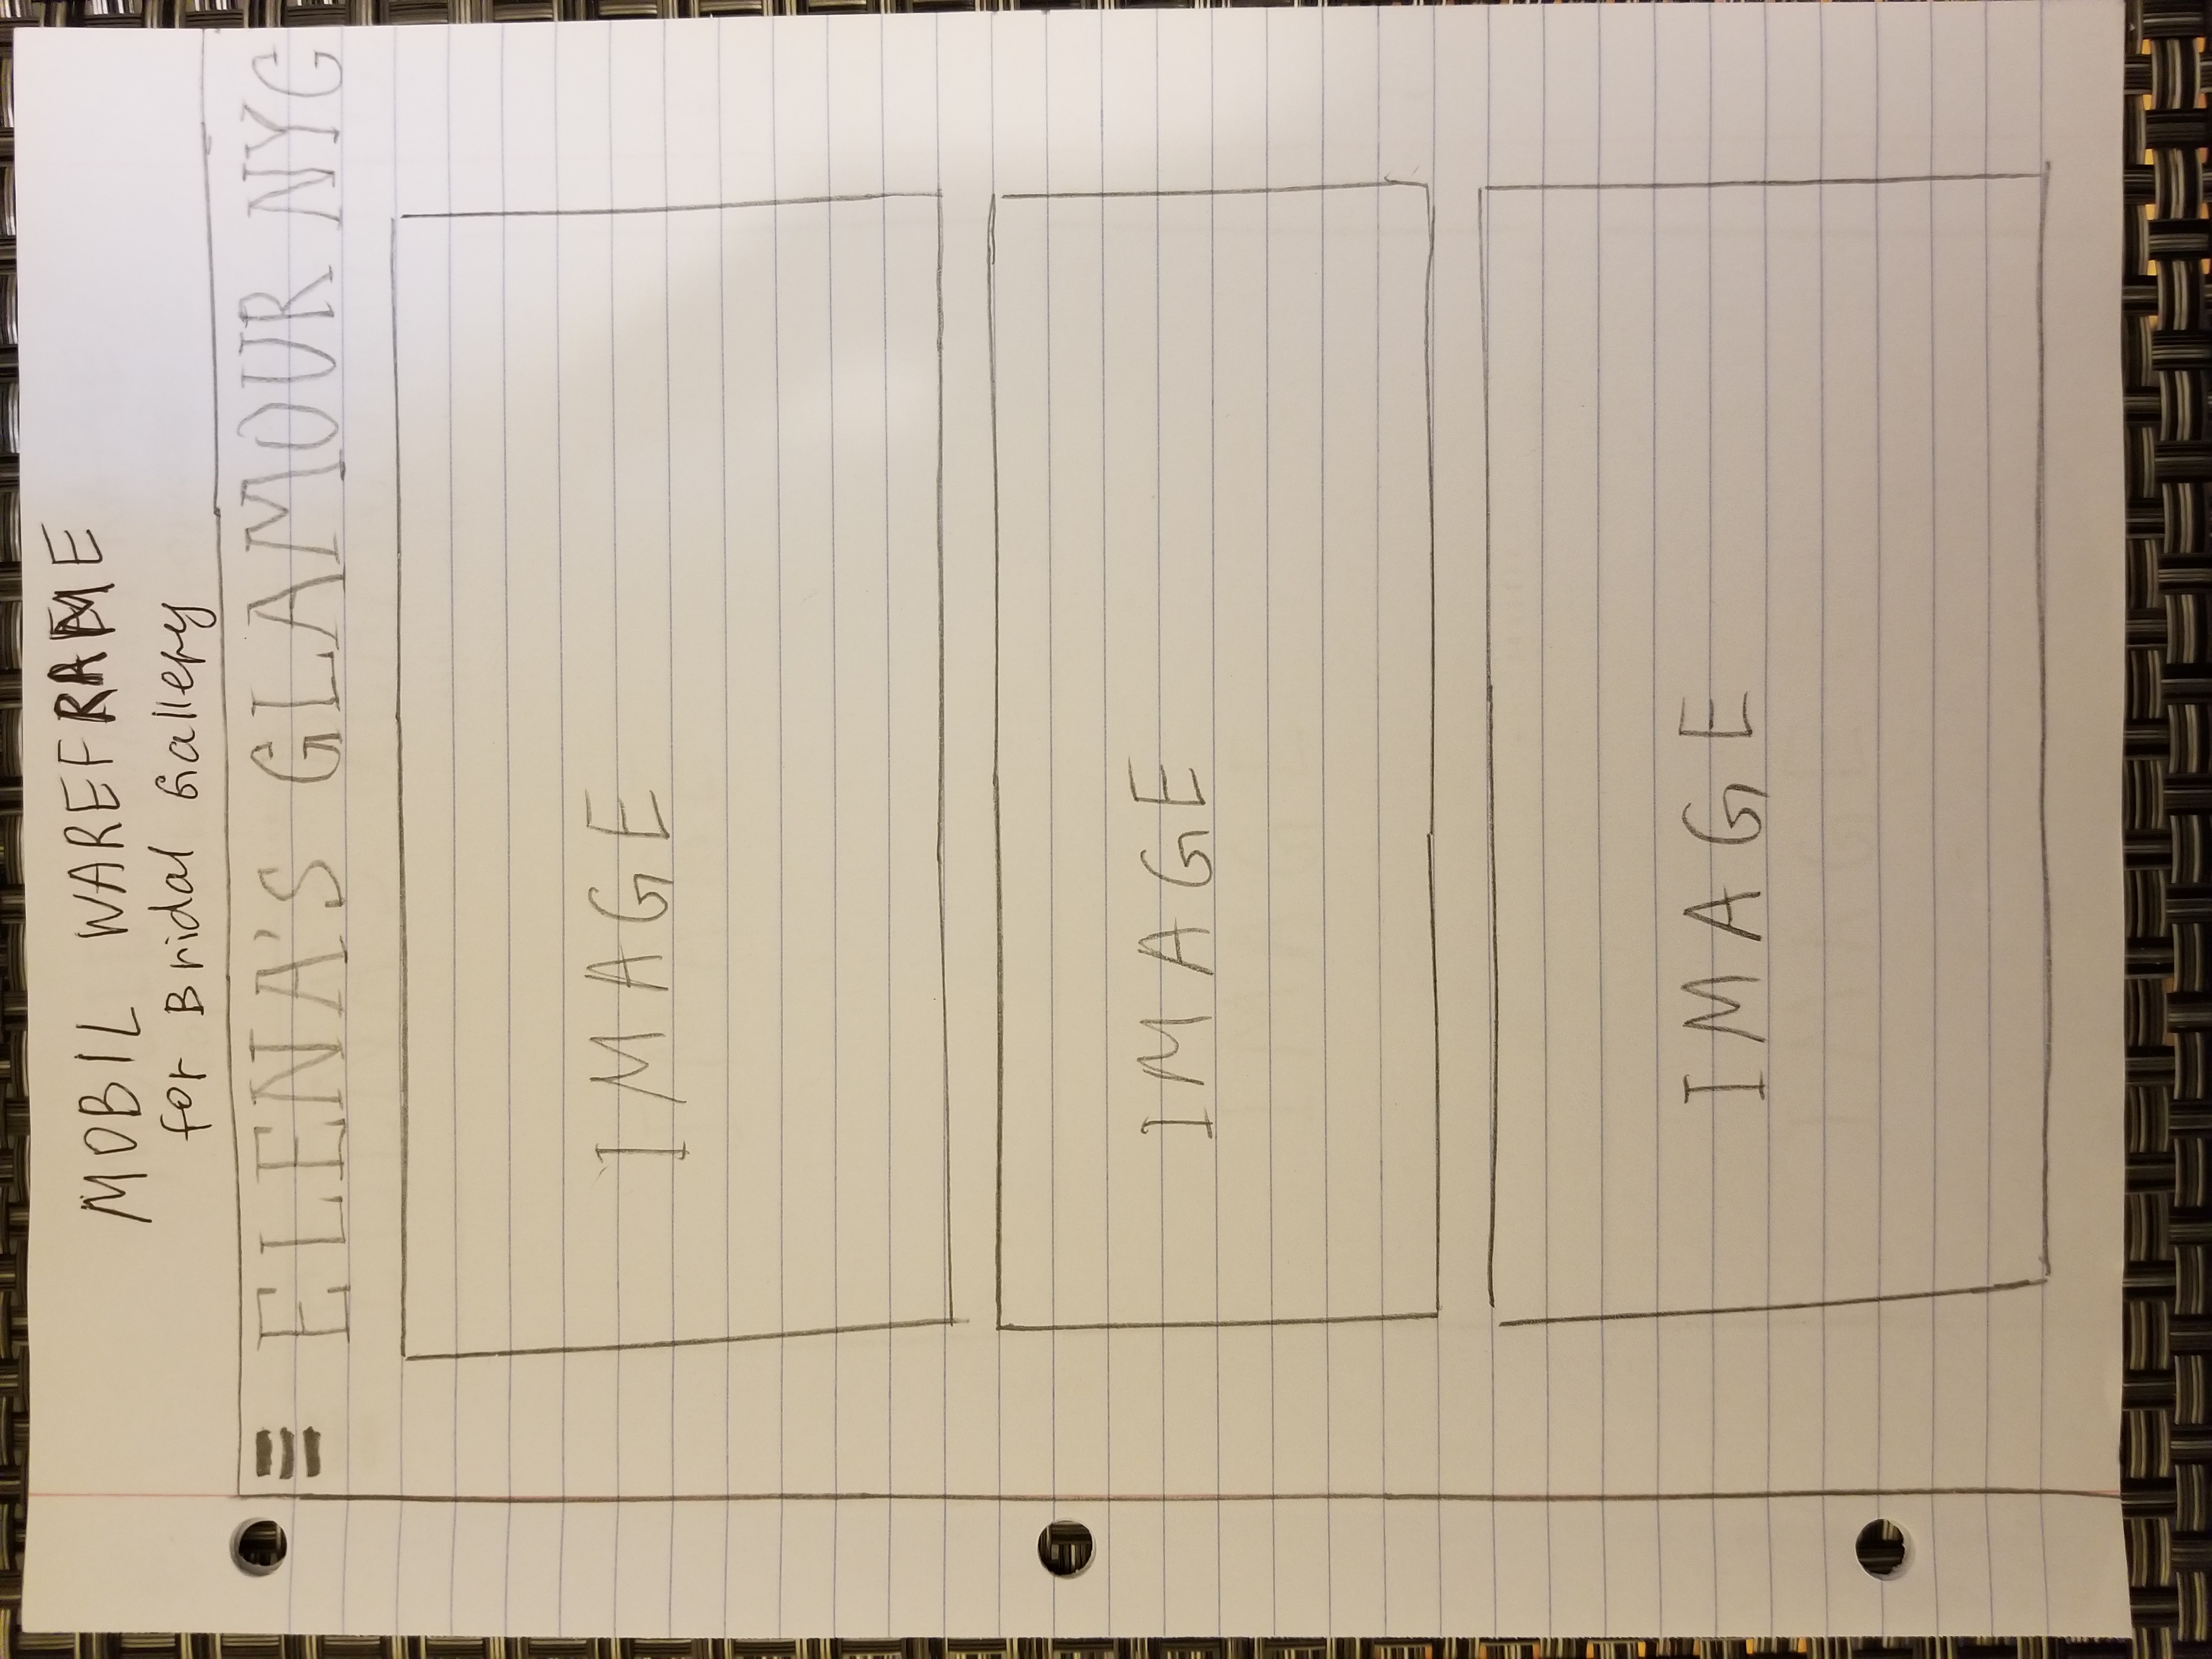 MOBIL WAREFRAME
for Bridal Gallery
ELENA'S GLAMOUR NYC
IMAGE
IMAGE
IMAGE